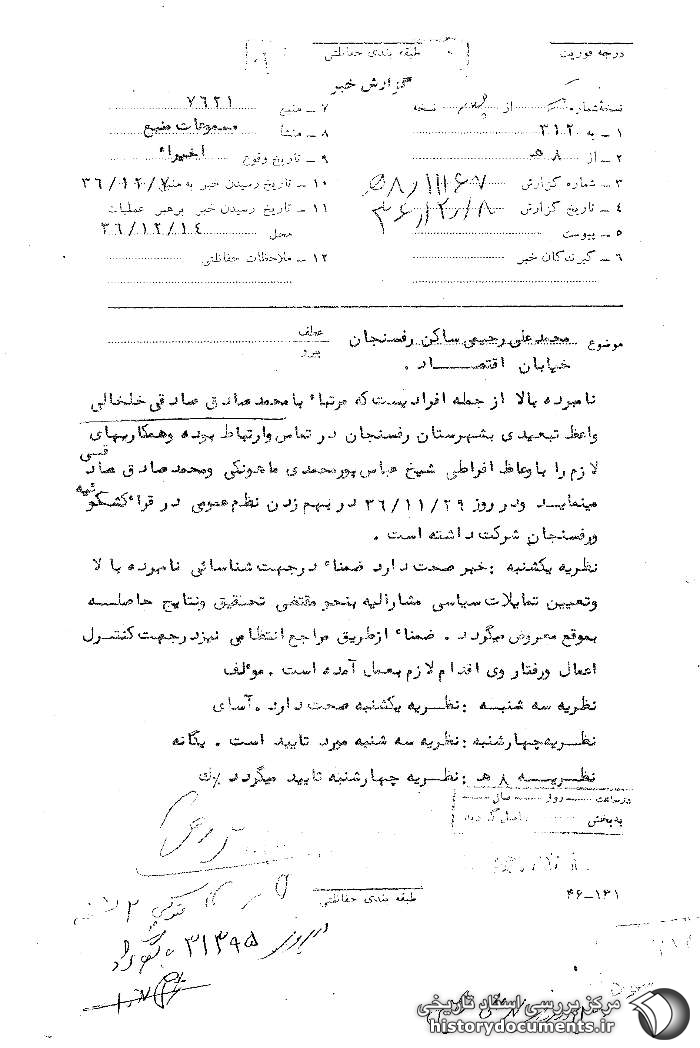 درجه فوریت
طبقه بندی حفاظتی
گزارش خبر
نسخه شماره از نسخه
۱ – به ۳۱۲
۲ – از ۸ هـ
۳ – شماره گزارش
۴ – تاریخ گزارش
۵ – پیوست
۶ – گیرندگان خبر
۷ – منبع ۷۶۲۱
۸ – منشأ مسموعات منبع
۹ – تاریخ وقوع اخیراً
۱۰ – تاریخ رسیدن خبر به منبع ۳۶/۱۲/۷
۱۱ – تاریخ رسیدن خبر برهبر عملیات
محل ۳۶/۱۲/۱۴
۱۲ – ملاحظات حفاظتی
موضوع محمدعلی رحیمی ساکن رفسنجان
خیابان اقتصاد .
عطف
پیرو
نامبرده بالا از جمله افرادیست که مرتباً با محمد صادق صادقی خلخالی
واعظ تبعیدی بشهرستان رفسنجان در تماس وارتباط بوده وهمکاریهای
لازم را با وعاظ افراطی شیخ عباس پورمحمدی ماهونکی ومحمد صادق صادقی
مینماید ودر روز ۳۶/۱۱/۲۹ در بهم زدن نظم عمومی در قراء کشکوئیه
ورفسنجان شرکت داشته است .
نظریه یکشنبه : خبر صحت دارد ضمناً درجهت شناسائی نامبرده بالا
وتعیین تمایلات سیاسی مشارالیه بنحو مقتضی تحقیق ونتایج حاصله
بموقع معروض میگردد . ضمناً ازطریق مراجع انتظامی نیز درجهت کنترل
اعمال ورفتار وی اقدام لازم بعمل آمده است . موئلف
نظریه سه شنبه : نظریه یکشنبه صحت دارد . آسای
نظریه چهارشنبه : نظریه سه شنبه مورد تایید است . یگانه
نظریه ۸ هـ : نظریه چهارشنبه تایید میگردد
در ساعت روز سال
به بخش واصل گردید
طبقه بندی حفاظتی
۴۶–۱۳۱
۳۱۳۹۵
مرکز بررسی اسناد تاریخی
historydocuments.ir